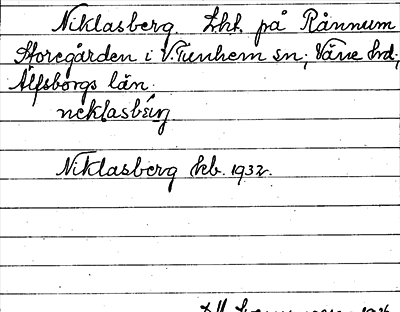 Niklasberg Lht på Rånnum
Storegården i V. Tunhem sn; Väne hd;
Älfsborgs län.
neklasbærg
Niklasberg kb. 1932.